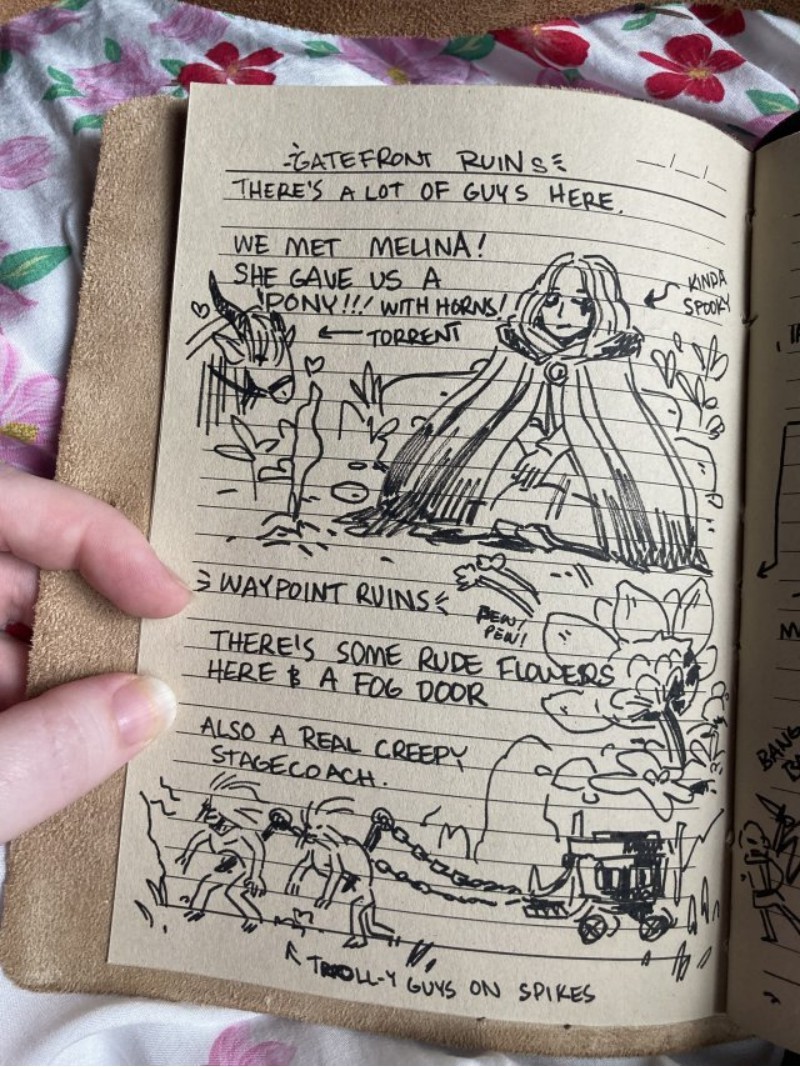 GATEFRONT RUINS
THERE'S A LOT OF GUYS HERE.
WE MET MELINA!
SHE GAVE US A
PONY!!! WITH HORNS!
KINDA
SPOOKY
← TORRENT
WAYPOINT RUINS
PEW!
PEW!
THERE'S SOME RUDE FLOWERS
HERE & A FOG DOOR
ALSO A REAL CREEPY
STAGECOACH.
TROLL-Y GUYS ON SPIKES
BANG